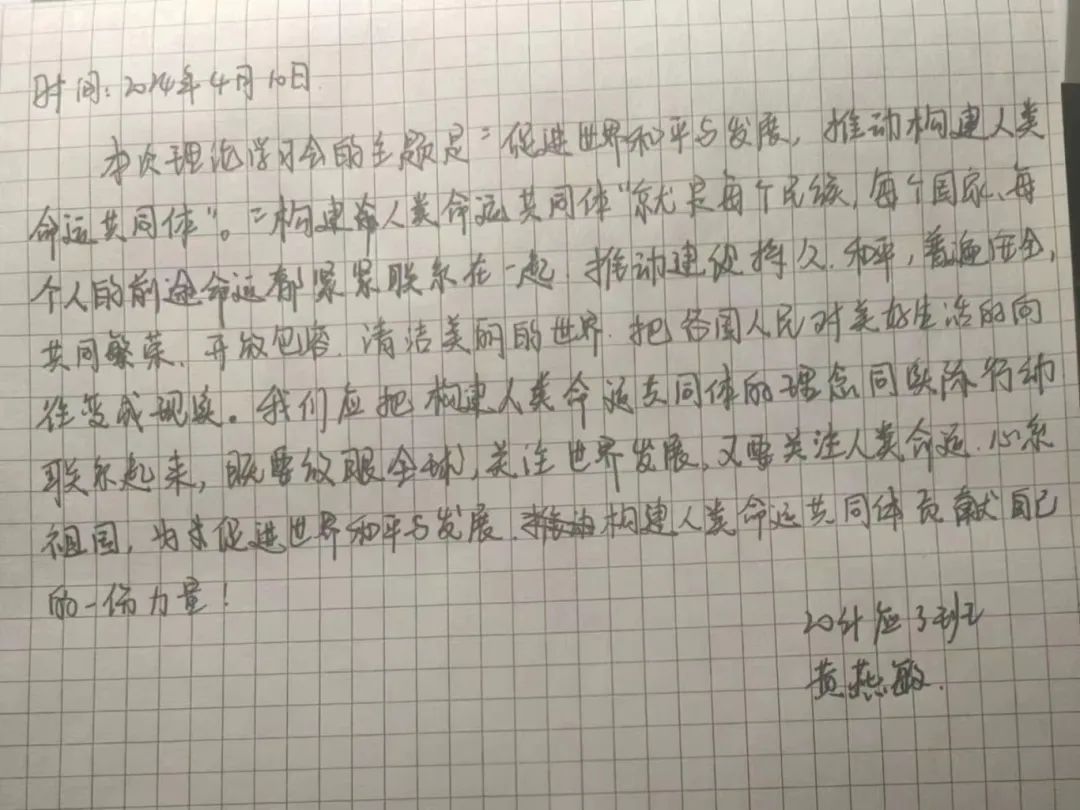 时间:2024年4月10日.
本次理论学习会的主题是“促进世界和平与发展,推动构建人类
命运共同体”。“构建人类命运共同体”就是每个民族,每个国家、每
个人的前途命运都紧紧联系在一起.推动建设持久.和平,普遍安全,
共同繁荣、开放包容.清洁美丽的世界.把各国人民对美好生活的向
往变成现实。我们应把构建人类命运共同体的理念同实际行动
联系起来,既要放眼全球,关注世界发展,又要关注人类命运.心系
祖国,为促进世界和平与发展.推动构建人类命运共同体贡献自己
的一份力量!
20计应3班
黄燕敏.